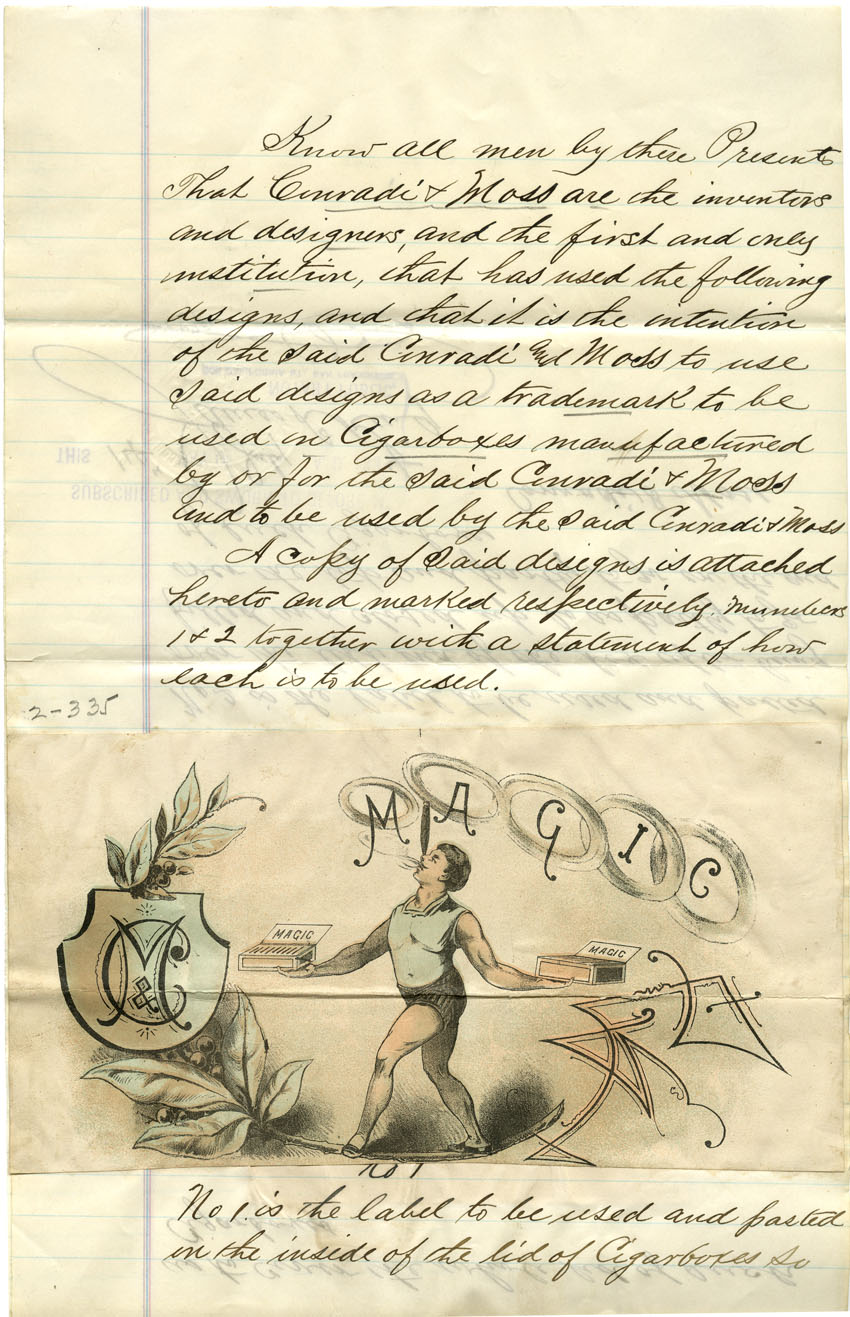 Know all men by these Presents
That Conradi & Moss are the inventors
and designers, and the first and only
institution, that has used the following
designs, and that it is the intention
of the said Conradi and Moss to use
said designs as a trademark to be
used on Cigarboxes manufactured
by or for the said Conradi & Moss
and to be used by the said Conradi & Moss
A copy of said designs is attached
hereto and marked respectively, numbers
1 & 2 together with a statement of how
each is to be used.
2-335
MAGIC
MAGIC
MAGIC
No 1
No 1. is the label to be used and pasted
on the inside of the lid of Cigarboxes so